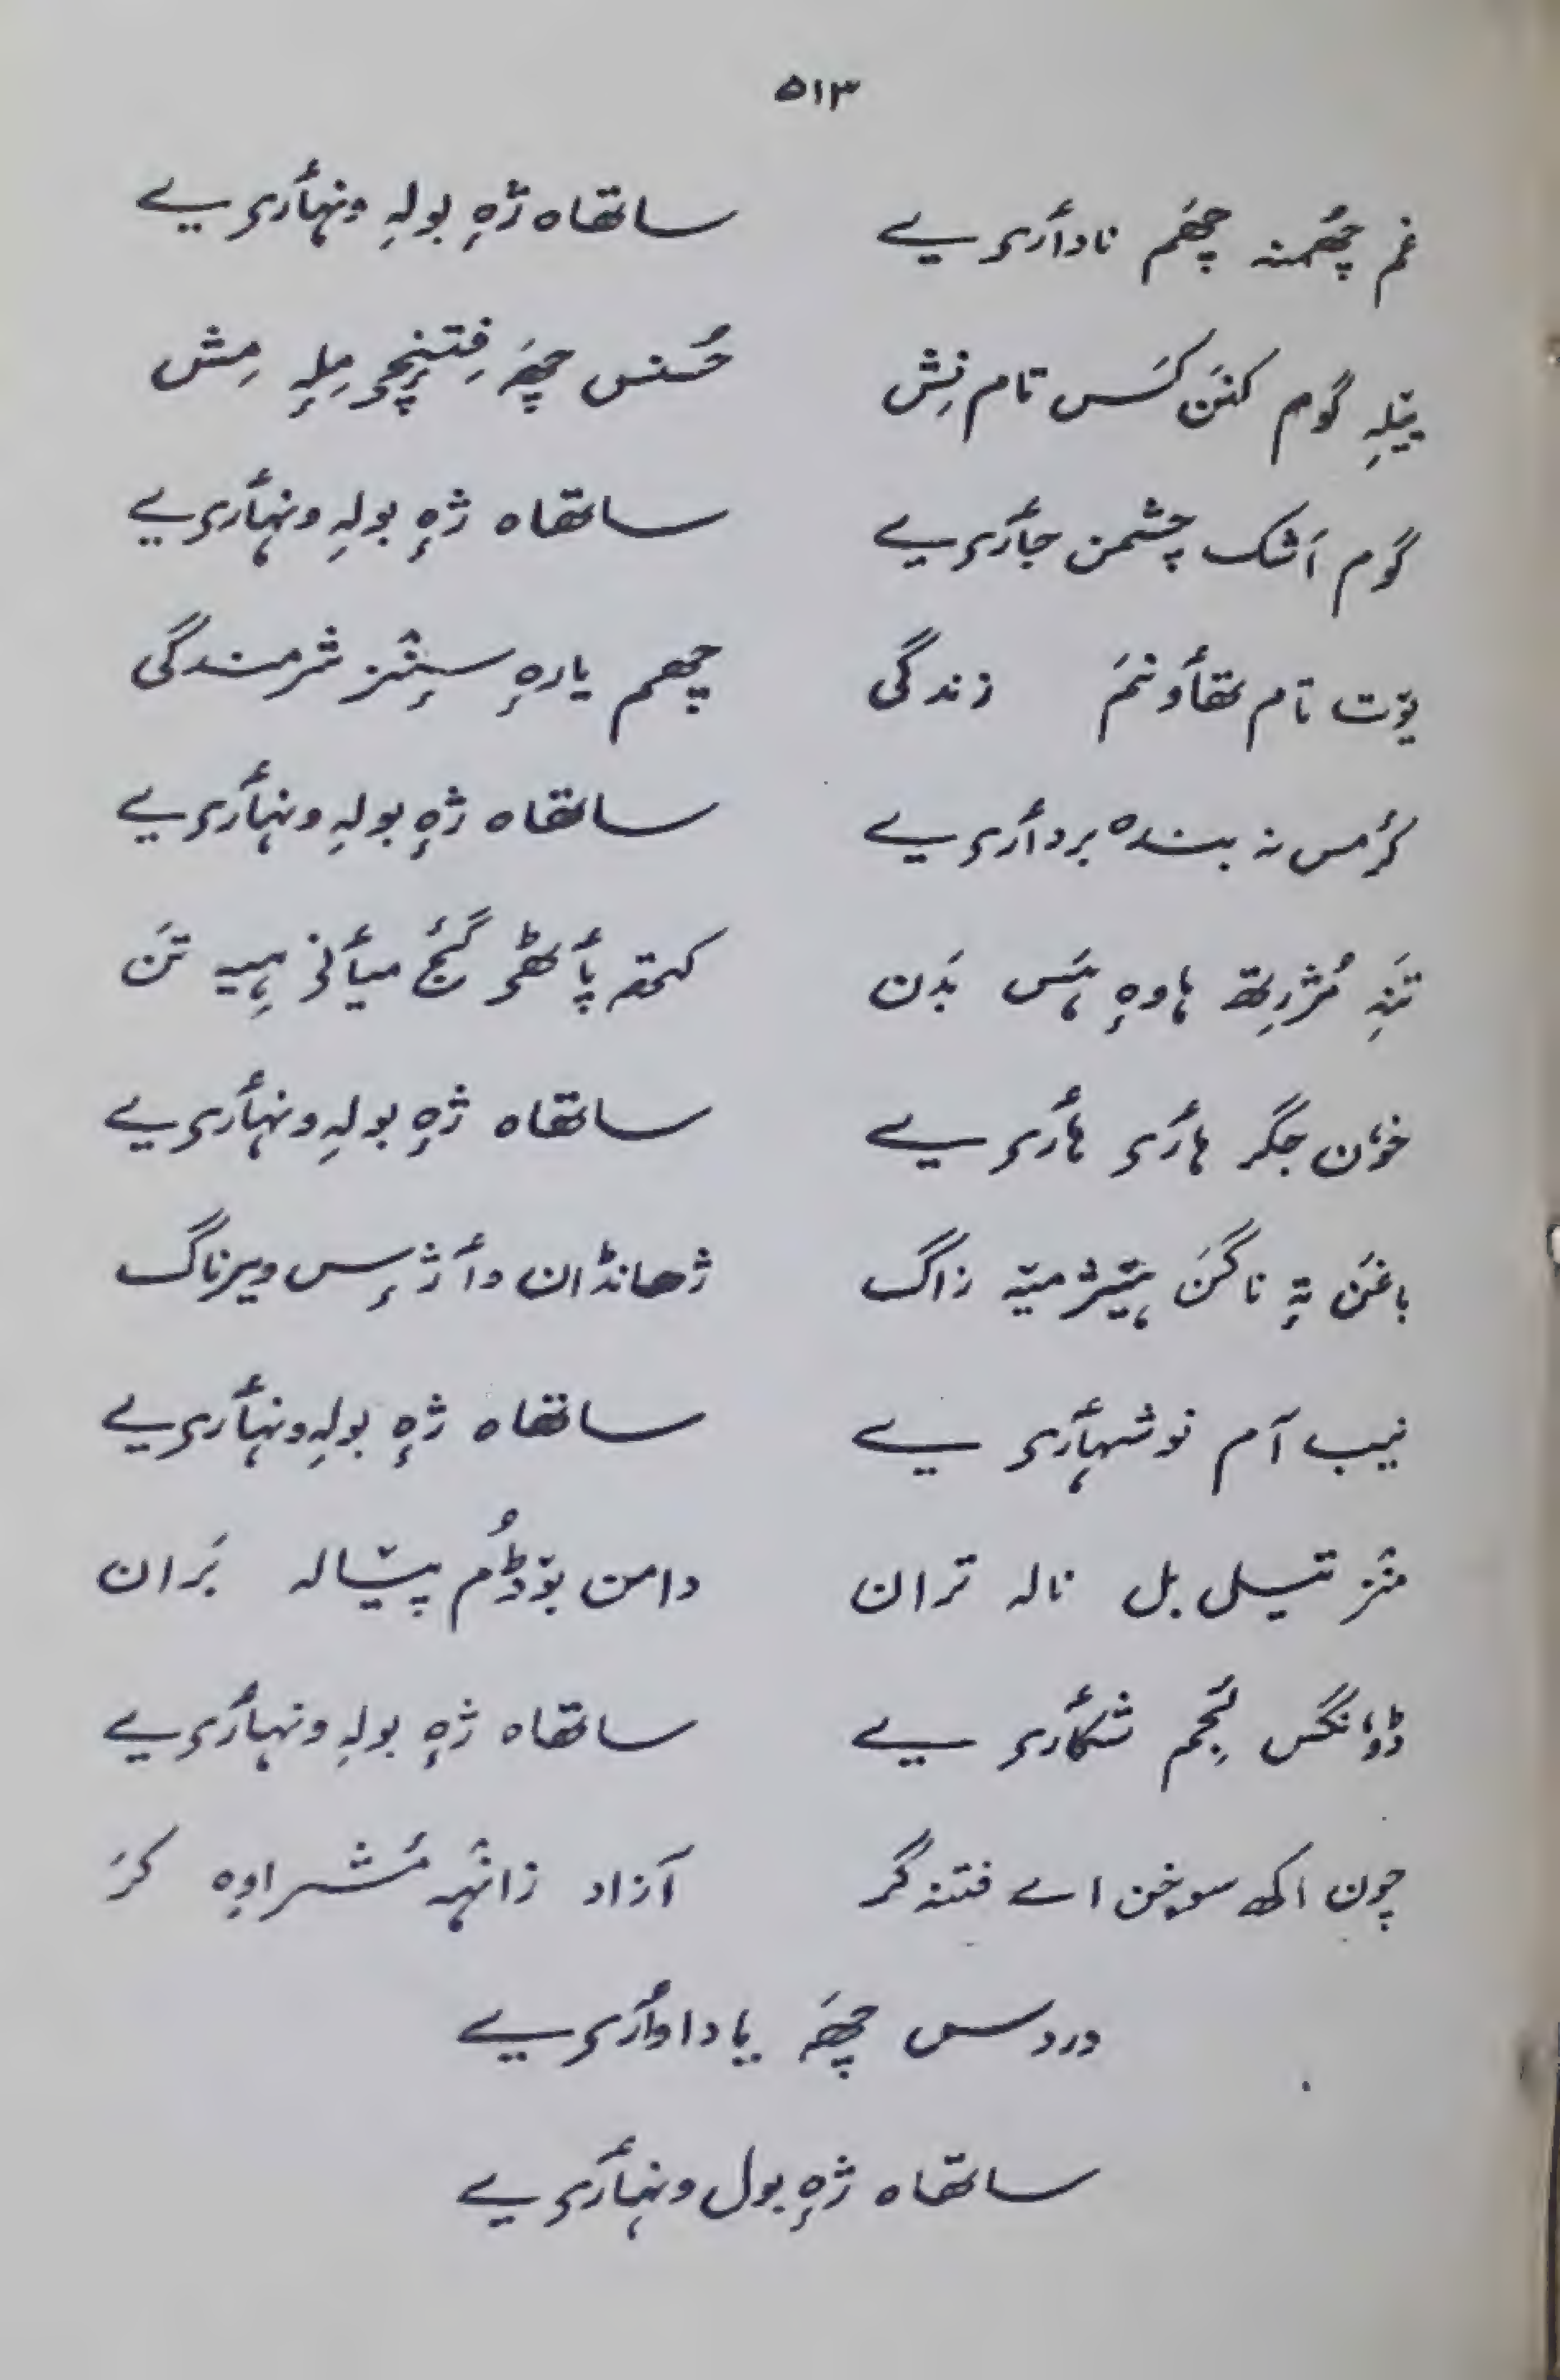 ۵۱۳
غم چھُمنہ چھَم نادأری یے ساتھاہ ژٕہ بولہِ ونہأری یے
پتلہِ گوم کنَن کَسس تام نِش حُسنس چھَہ فِتنٕچی مِلہٕ مِش
گوم اَشک چشمن جأری یے ساتھاہ ژٕہ بولہِ ونہأری یے
یوٚت تام تھأونَم زندگی چھم یارٕہ سٕنٛز شرمندگی
کرٔمس نہ بندہ بردأری یے ساتھاہ ژٕہ بولہِ ونہأری یے
تَنہِ مُژرِتھ ہاوٕہ ہَس بَدَن کمتہ پأٹھی گٔج میأنی ہِیہ تَن
خوٗن جگر ہأری ہأری یے ساتھاہ ژٕہ بولہِ ونہأری یے
باغَن تہٕ ناگَن ہیٚتٛژمیتہ زاگ ژھانڈان وأژٕس ویرناگ
نیب آم نوشہأری یے ساتھاہ ژٕہ بولہِ ونہأری یے
منٛز تیلی بل نالہ تران دامن بوٚڈُم پیٚالہ بَران
ڈوٗنگس لٔجِم شکأری یے ساتھاہ ژٕہ بولہِ ونہأری یے
چون اکھ سوخن اے فتنہ گر آزاد زانٛہہ مُشراوِہ کَر
دردس چھَہ یاداوأری یے
ساتھاہ ژٕہ بول ونہأری یے